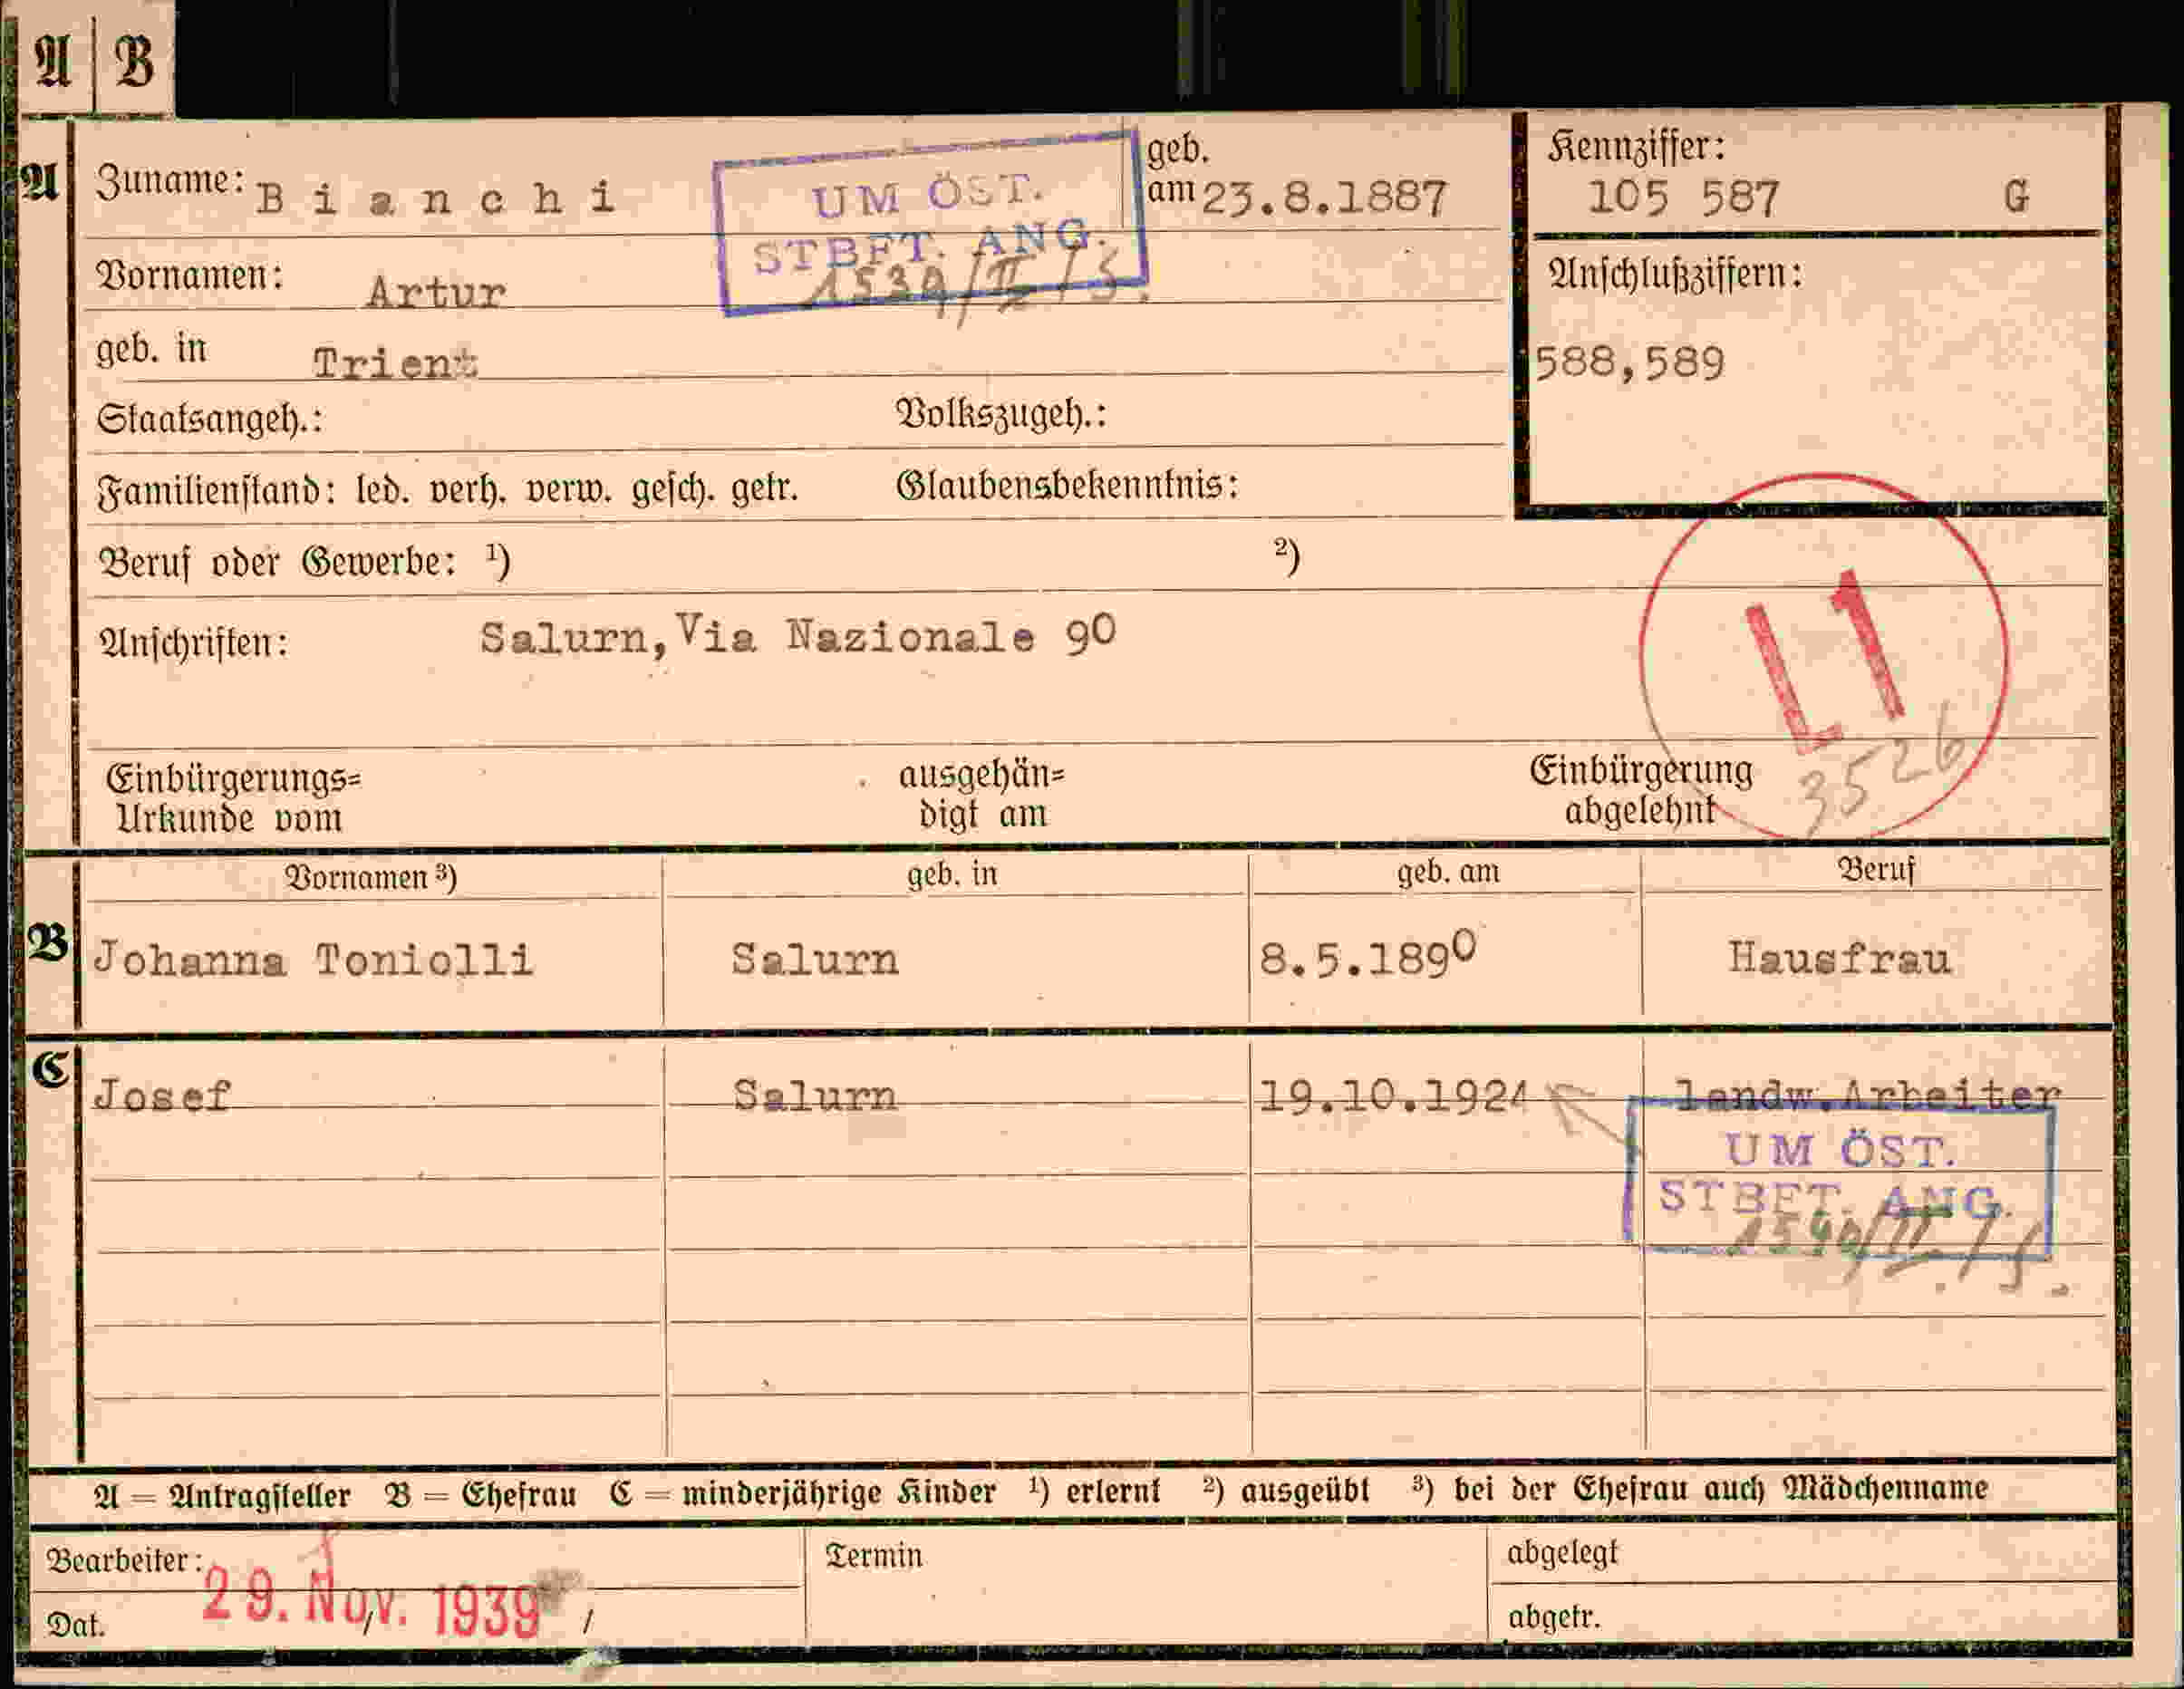 A B
A
Zuname: Bianchi
UM ÖST.
STBFT. ANG.
geb.
am 23.8.1887
Kennziffer:
105 587 G
Vornamen: Artur
Anschlußziffern:
588,589
geb. in Trient
Staatsangeh.: Volkszugeh.:
Familienstand: led. verh. verw. gesch. getr. Glaubensbekenntnis:
Beruf oder Gewerbe: 1) 2)
L1
3526
Anschriften: Salurn, Via Nazionale 90
Einbürgerungs=
Urkunde vom
ausgehän=
digt am
Einbürgerung
abgelehnt
Vornamen 3) geb. in geb. am Beruf
B
Johanna Toniolli Salurn 8.5.1890 Hausfrau
C
Josef Salurn 19.10.1924 landw. Arbeiter
UM ÖST.
STBFT. ANG.
A = Antragsteller B = Ehefrau C = minderjährige Kinder 1) erlernt 2) ausgeübt 3) bei der Ehefrau auch Mädchenname
Bearbeiter: Termin abgelegt
29. Nov. 1939
Dat. / / abgetr.